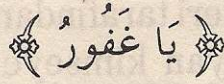 ﴿ يَا غَفُورُ ﴾